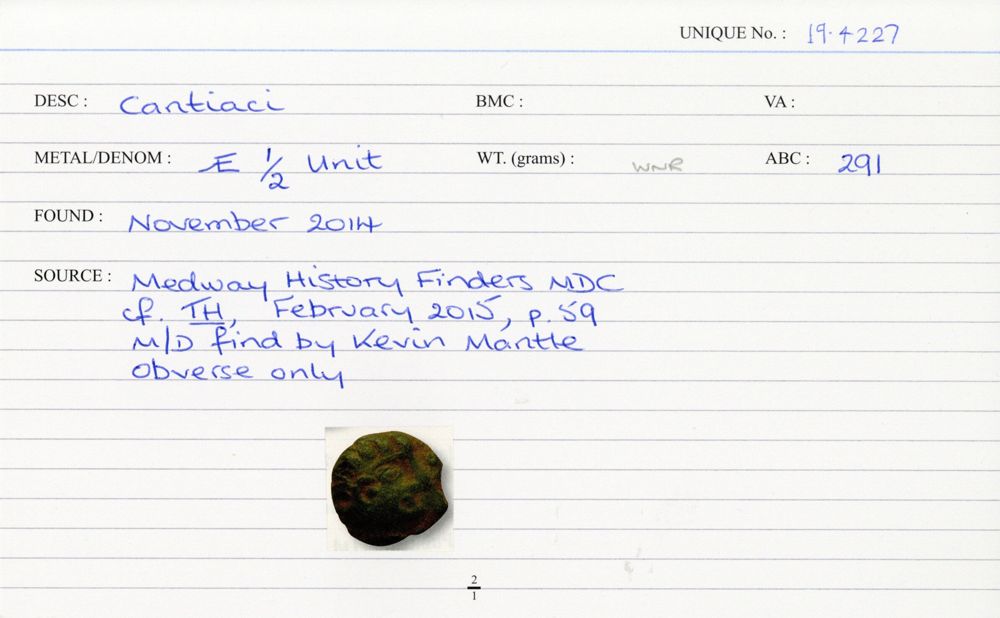 UNIQUE No. : 19.4227
DESC : Cantiaci BMC : VA :
METAL/DENOM : Æ 1/2 Unit WT. (grams) : WNR ABC : 291
FOUND : November 2014
SOURCE : Medway History Finders MDC
cf. TH, February 2015, p. 59
M/D find by Kevin Mantle
Obverse only
2
1